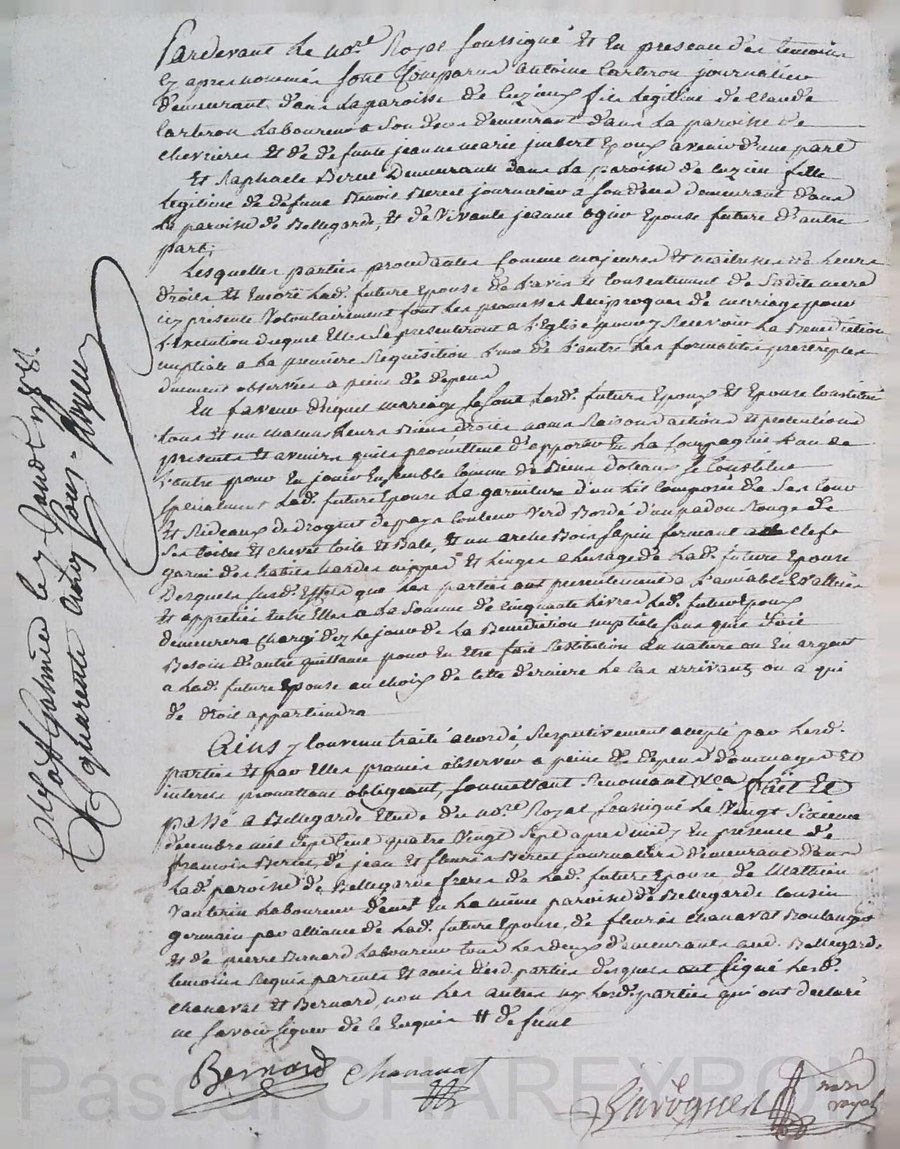 Pardevant Le nore Royal Soussigné Et En presence des temoins
cy apres nommés sont Comparus antoine Carteron journalier
demeurant dans La paroisse de Cuzieux fils Legitime de Claude
Carteron Laboureur a Son deces demeurant dans La paroisse de
Chevrieres Et de defunte jeanne marie jmbert Epoux avenir d'une part
Et Raphaele Berest Demeurante dans La paroisse de Cuzieu fille
legitime de defunt Benoit Berest journalier a son deces demeurant dans
la paroisse de Bellegarde, Et de Vivante jeanne ogier Epouse future d'autre
part;
Lesquelles parties procedantes Comme majeures Et maitresses de Leurs
droits Et Encore Lad. future Epouse de L'avis Et Consentement de Sadite mere
icy presente Volontairement font Les promesses Reciproques de mariage pour
L'execution duquel Elles Se presenteront a L'Eglise pour y Recevoir La Benediction
nuptiale a La premiere Requisition L'une de L'autre Les formalités prescriptes
duement observées a peine de depens
En faveur duquel mariage Se sont Lesd. futurs Epoux Et Epouse Constitué
tous Et un chacuns Leurs Biens droits noms Raisons actions Et pretentions
presents Et avenirs qu'ils promettent d'apporter En La Compagnie L'un de
L'autre pour En jouir Ensemble Comme de Biens dotaux Se Constitue
Specialement Lad. future Epouse La garniture d'un Lit Composée de Ses Cour
Et Rideaux de Droguet de pays Couleur Verd Bordé d'un padou Rouge de
Ses toiles Et chevet toile Et Bale, Et un arche Bois sapin fermant a Clefs
garni des habits hardes nippes Et Linges a Lusage de Lad. future Epouse
Lesquels Susd. Effets que Les parties ont presentement a L'amiable Evalués
Et appretiés Entre Elles a La Somme de Cinquante Livres Led. futur Epoux
demeurera Chargé dez Le jour de La Benediction nuptiale Sans quil Soit
Besoin d'autre quittance pour En Etre fait Restitution En nature ou En argent
a Lad. future Epouse au choix de Cette derniere Le Cas arrivant, ou a qui
de droit appartiendra
Ainsy Convenu traité accordé, Respectivement accepté par Lesd.
parties Et par Elles promis observer a peine de depens dommages Et
interets promettant obligeant, soumettant Renonçant &ca fait Et
passé a Bellegarde Etude du nore Royal Soussigné Le Vingt Sixieme
decembre mil Sept cent quatre Vingt Sept apres midy En presence de
francois Berest de jean Et fleurie Berest journaliers demeurant dans
Lad. paroisse de Bellegarde freres de Lad. future Epouse de Mathieu
Vauterin Laboureur demt En La même paroisse de Bellegarde Cousin
germain par alliance de Lad. future Epouse, de fleurie Chanavat Boulanger
Et de pierre Bernard Laboureur tous Les deux demeurants aud. Bellegarde
temoins Requis parents Et amis desd. parties desquels ont Signé Lesd.
Chanavat Et Bernard non Les autres ny Lesd. parties qui ont declaré
ne Savoir Signer de ce Enquis # de fune
Bernard Chanavat
nore
royal
Pascal CHAREYRON